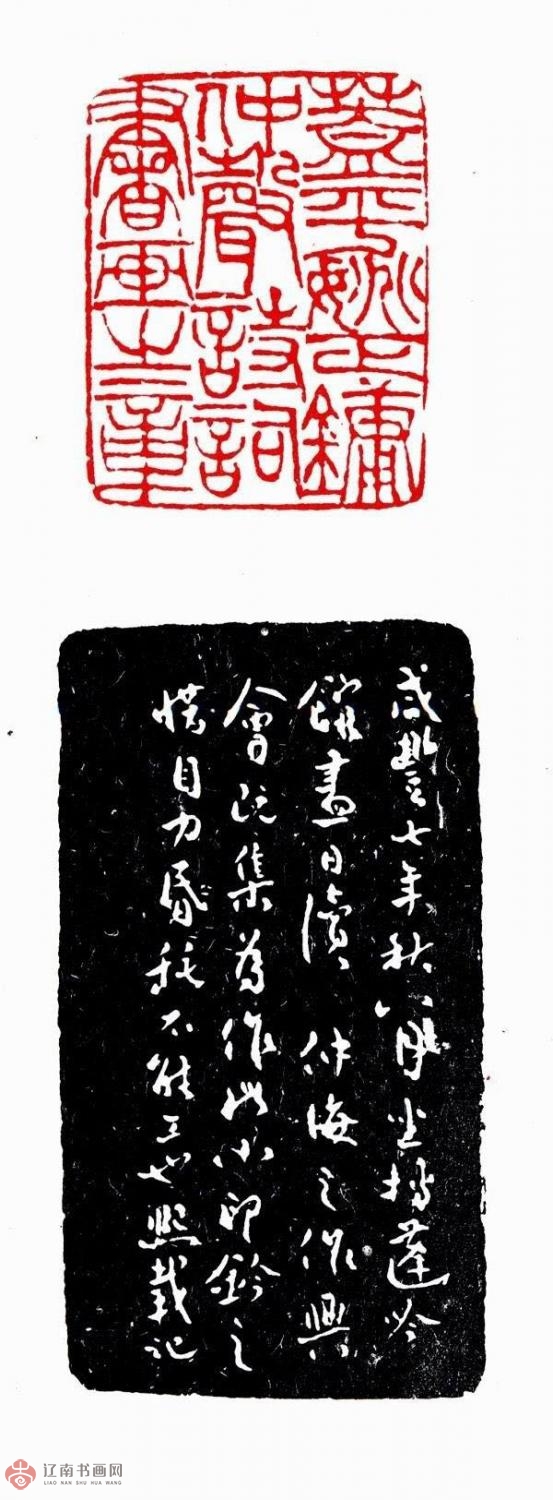 蓋平姚正鏞
仲聲詩詞
書畫之章
咸豐七年秋八月坐蓬吟
館盡日讀 仲海之作興
會既集為作此小印鈐之
惜目力昏耗不能工也熙載記
辽南书画网
LIAO NAN SHU HUA WANG